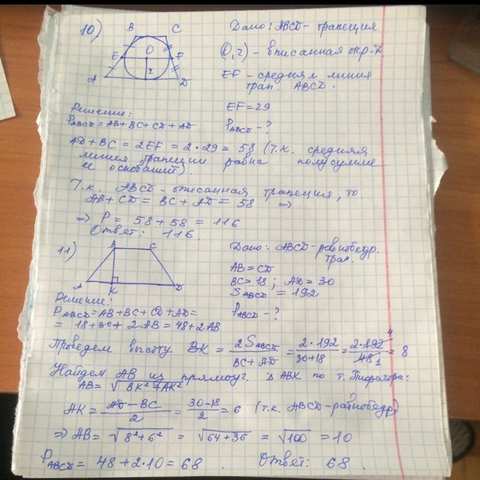 10)
B C
O
E F
r
A D
Дано: ABCD - трапеция
(O, r) - вписанная окр-ть
EF - средняя линия
трап. ABCD.
EF = 29
P_ABCD - ?
Решение:
P_ABCD = AB + BC + CD + AD
AD + BC = 2EF = 2 · 29 = 58 (т.к. средняя
линия трапеции равна полусумме
её оснований).
Т.к. ABCD - описанная трапеция, то
AB + CD = BC + AD = 58 ⇒
⇒ P = 58 + 58 = 116
Ответ: 116.
11)
B C
A K D
Дано: ABCD - равнобедр.
трап.
AB = CD
BC = 18; AD = 30
S_ABCD = 192
P_ABCD - ?
Решение:
P_ABCD = AB + BC + CD + AD =
= 18 + 30 + 2AB = 48 + 2AB
Проведем высоту BK = 2S_ABCD / (BC + AD) = 2 · 192 / (30 + 18) = 2 · 192 4 / 48 1 = 8
Найдем AB из прямоуг. Δ ABK по т. Пифагора:
AB = √(BK² + AK²)
AK = (AD - BC) / 2 = (30 - 18) / 2 = 6 (т.к. ABCD - равнобедр)
⇒ AB = √(8² + 6²) = √(64 + 36) = √100 = 10
P_ABCD = 48 + 2 · 10 = 68. Ответ: 68.